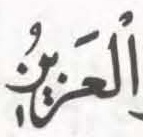 الْعَزِيزُ